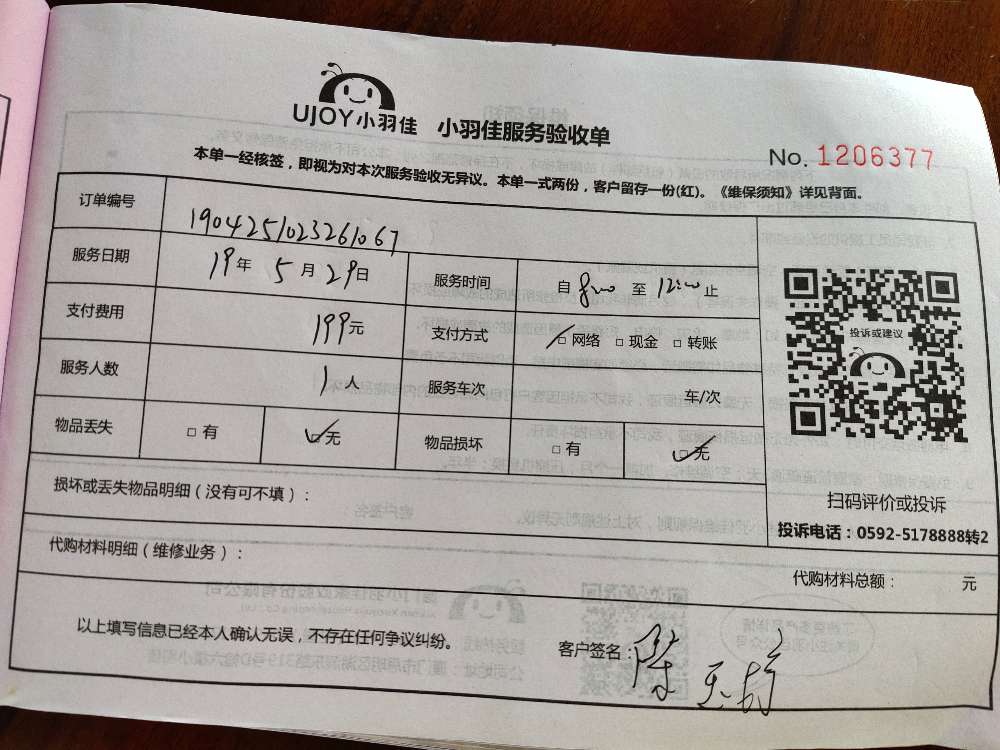 UJOY小羽佳 小羽佳服务验收单
No. 1206377
本单一经核签，即视为对本次服务验收无异议。本单一式两份，客户留存一份(红)。《维保须知》详见背面。
订单编号 1904251023261067
服务日期 19年 5月 29日 服务时间 自 8:00 至 12:00 止
支付费用 199元 支付方式 □ 网络 □ 现金 □ 转账
服务人数 1人 服务车次 车/次
物品丢失 □ 有 □ 无 物品损坏 □ 有 □ 无
投诉或建议
扫码评价或投诉
投诉电话：0592-5178888转2
损坏或丢失物品明细（没有可不填）：
代购材料明细（维修业务）：
代购材料总额： 元
以上填写信息已经本人确认无误，不存在任何争议纠纷。 客户签名：陈